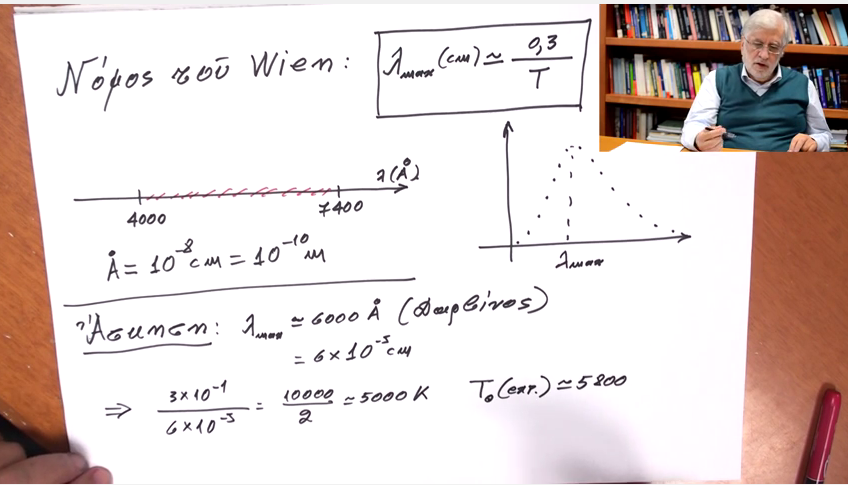 Νόμος τοῦ Wien: λmax (cm) ≃ 0,3 / T
λ(Å)
4000 7400
Å = 10⁻⁸ cm = 10⁻¹⁰ m
λmax
Ἄσκηση: λmax ≃ 6000 Å
= 6 × 10⁻⁵ cm
⇒ 3×10⁻¹ / 6×10⁻⁵ = 10000 / 2 ≃ 5000 K T₀ (επ.) ≃ 5800